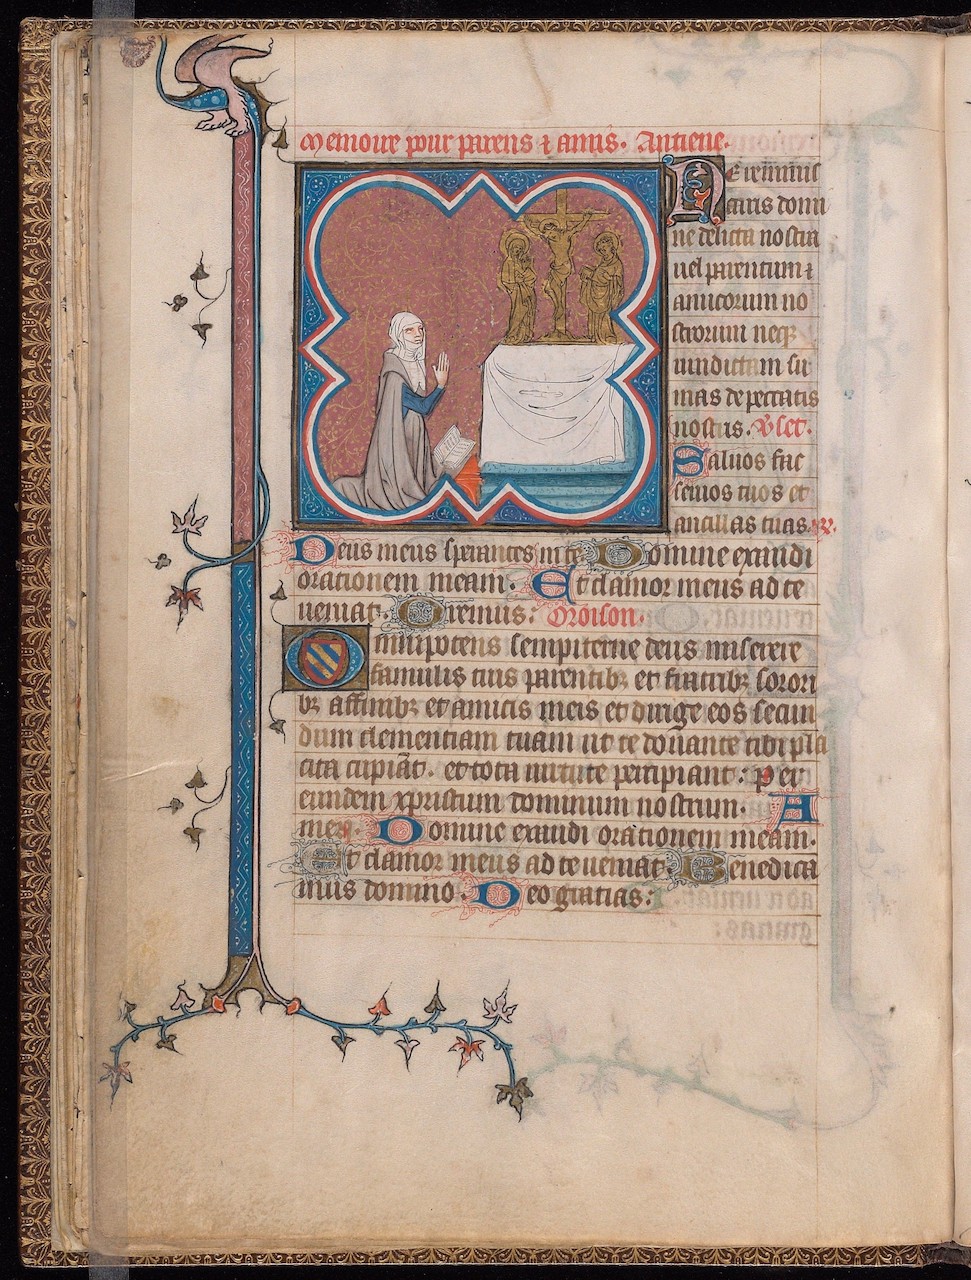 Memoire pour parens & amis. Antiene.
Ne reminis
caris domi
ne delicta nostra
uel parentum &
amicorum no
strorum neqꝫ
uindictam su
mas de peccatis
nostris. Uset.
Saluos fac
seruos tuos et
ancillas tuas. R.
Deus meus sperantes in te Domine exaudi
orationem meam. Et clamor meus ad te
ueniat. Oremus: Oroison.
Omnipotens sempiterne deus miserere
famulis tuis parentibꝫ et fratribꝫ sorori
bꝫ affinibꝫ et amicis meis et dirige eos secun
dum clementiam tuam ut te donante tibi pla
cita cupiãt. et tota uirtute percipiant: Per
eundem xpristum dominum nostrum. A
men. Domine exaudi orationem meam.
Et clamor meus ad te ueniat. Benedica
mus domino. Deo gratias: